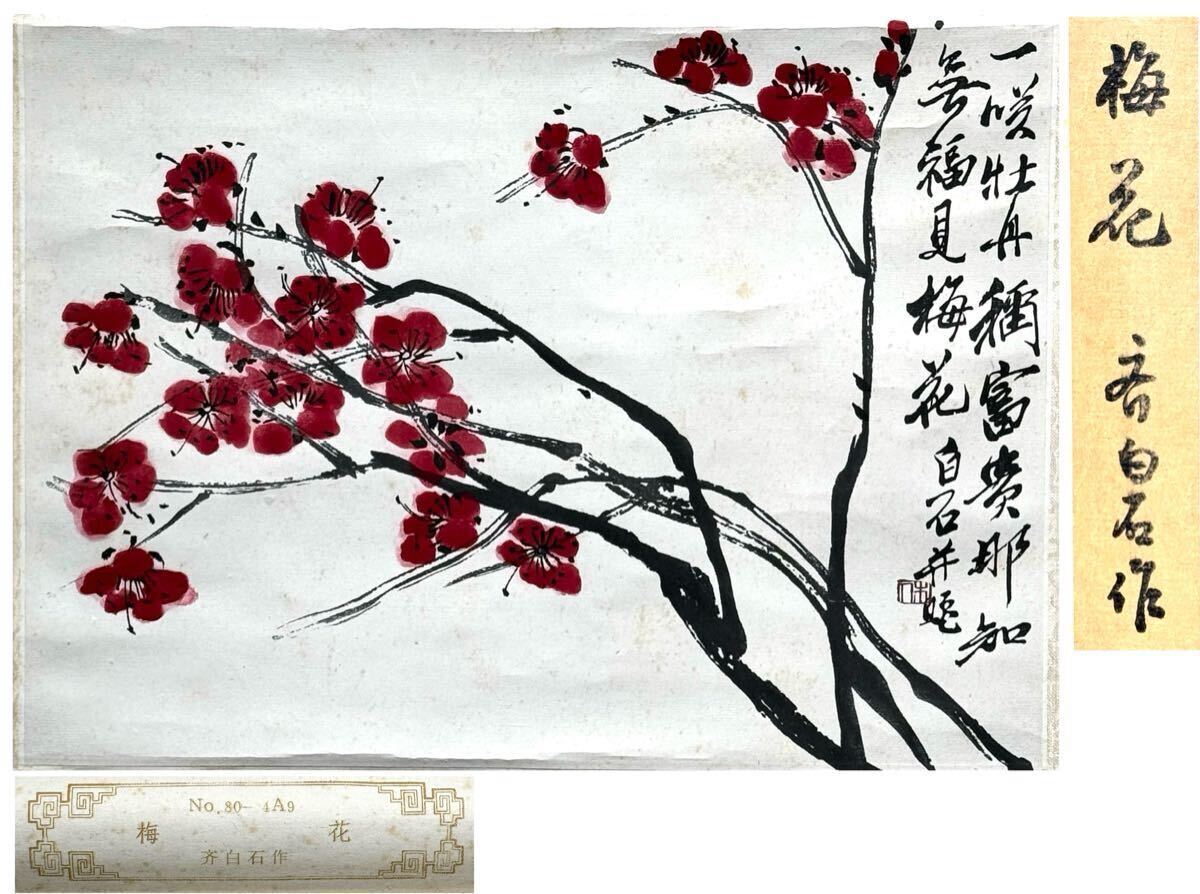 一咲牡丹稱富貴那知
無福見梅花白石并題
梅花
齐白石作
No.80-4A9
梅花
齐白石作